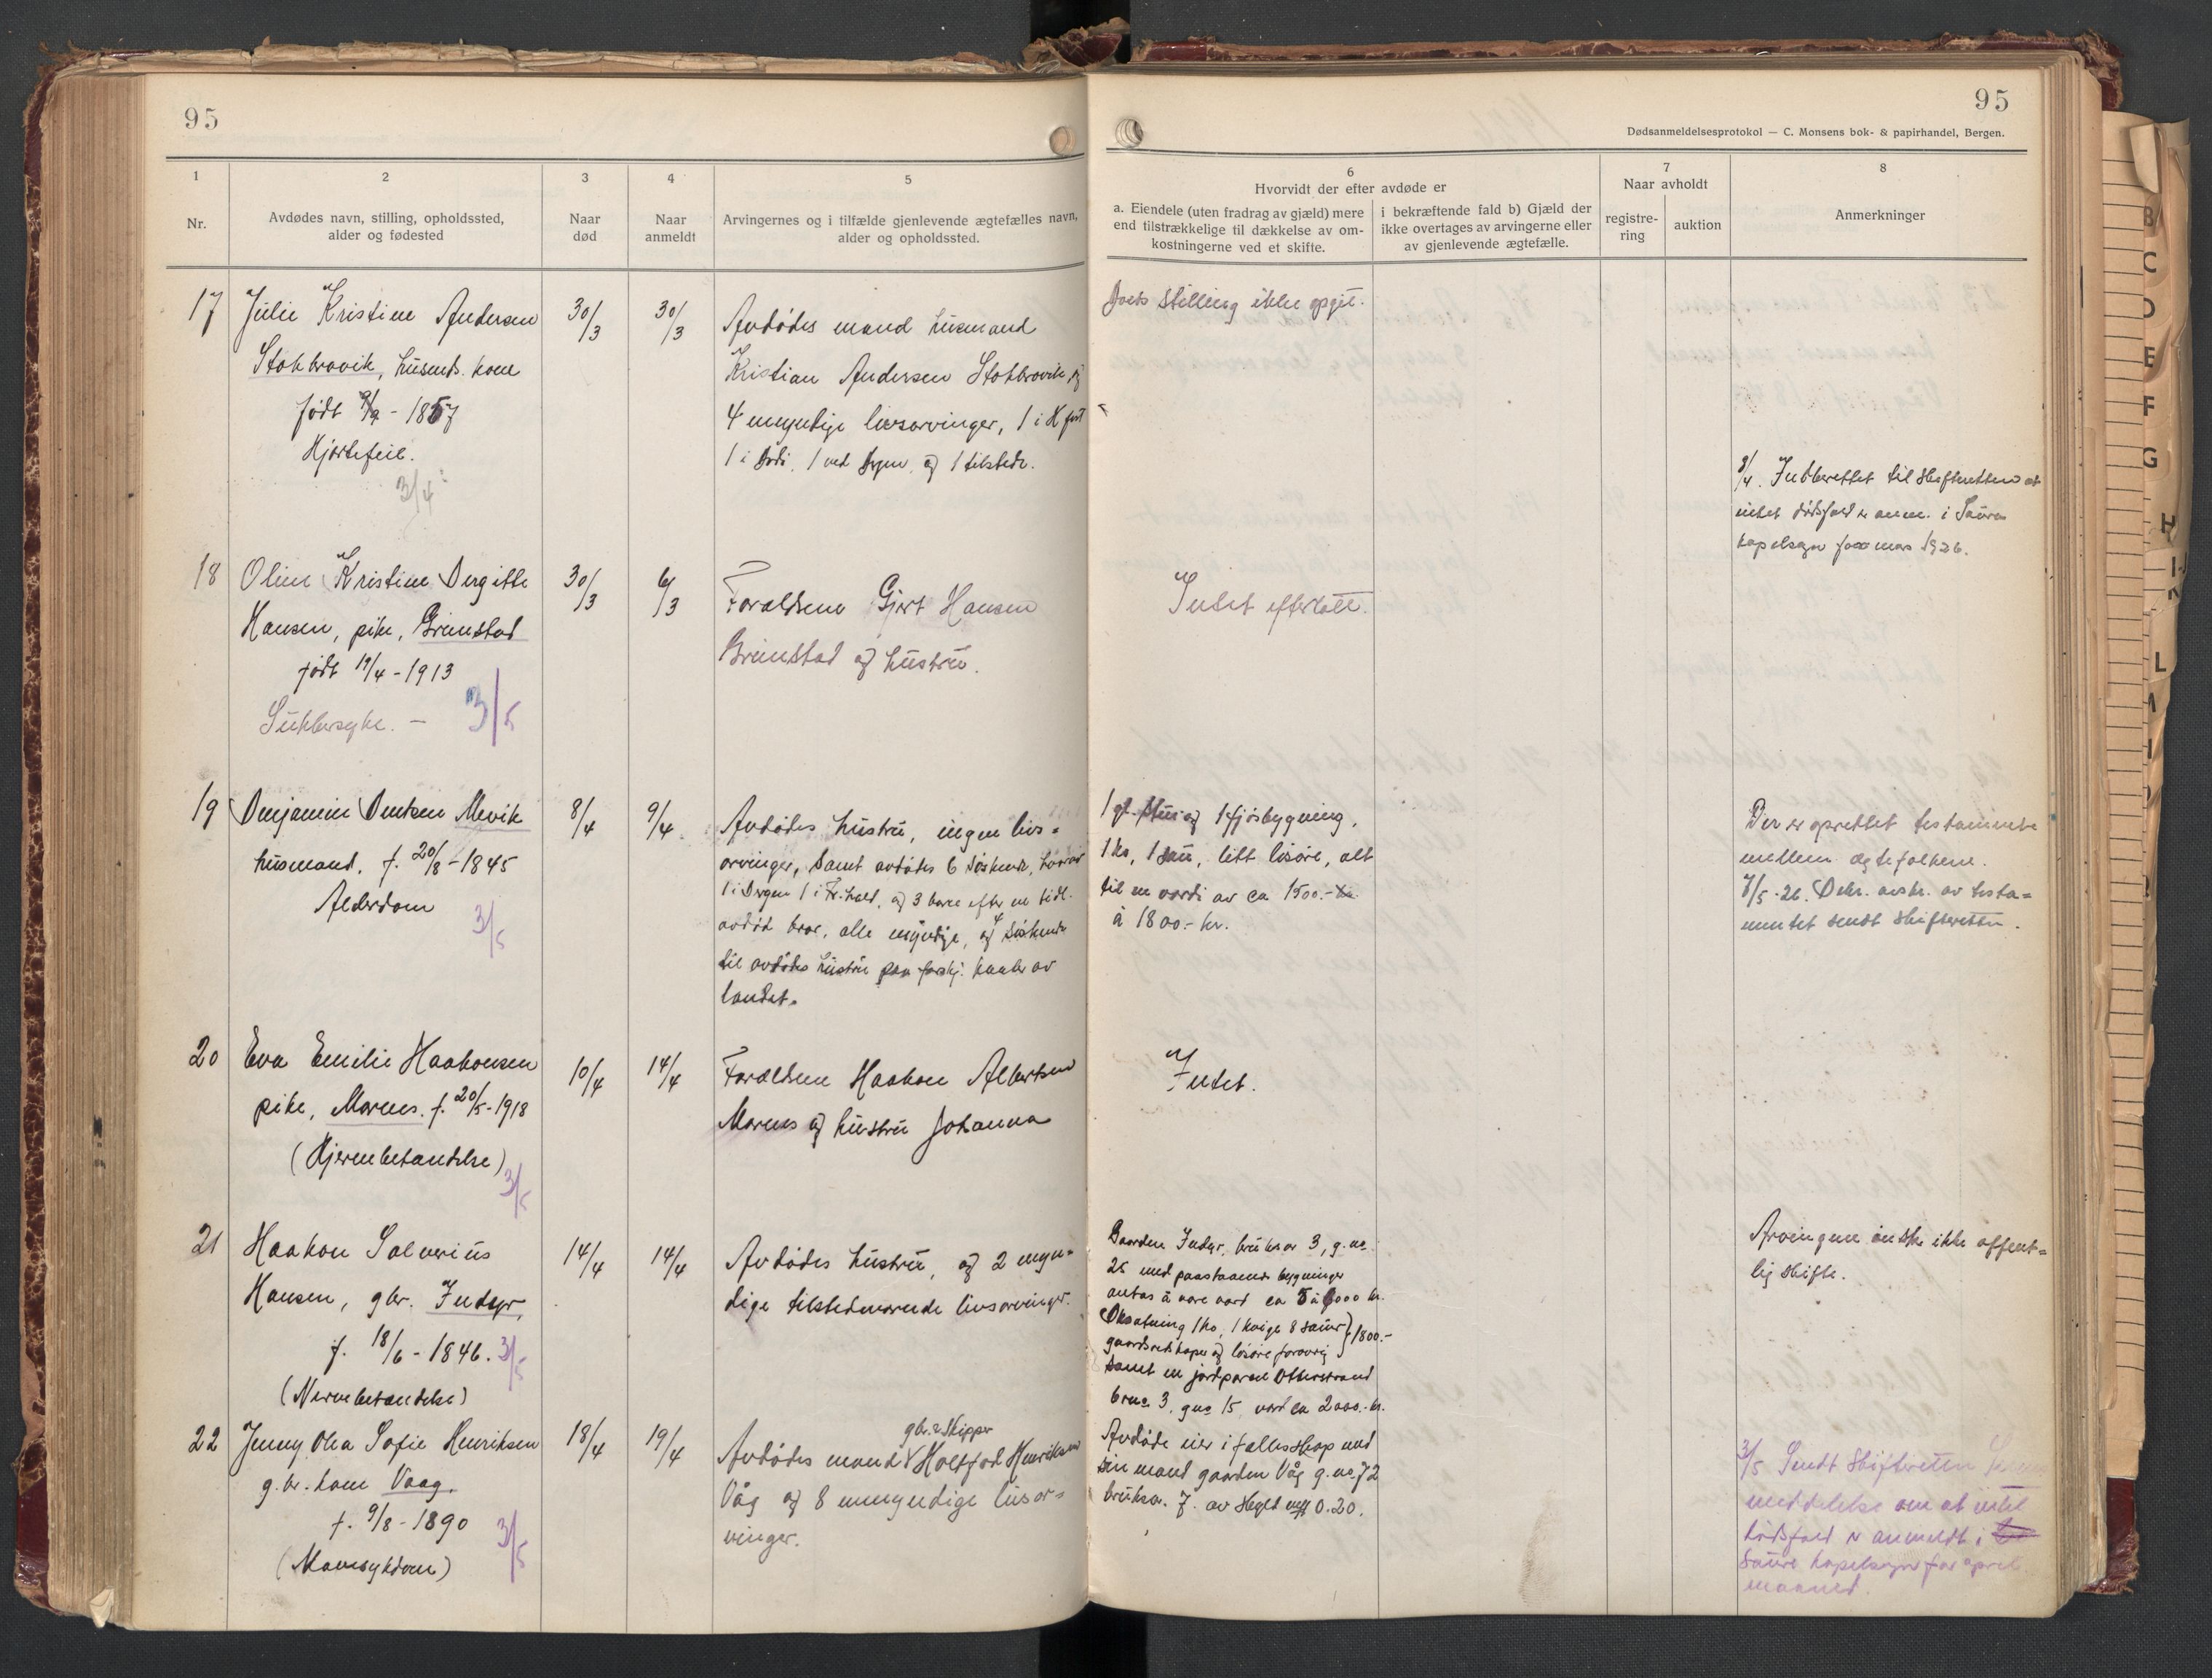 95
95
Dødsanmeldelsesprotokol — C. Monsens bok- & papirhandel, Bergen.
1
Nr.
2
Avdødes navn, stilling, opholdssted,
alder og fødested
3
Naar
død
4
Naar
anmeldt
5
Arvingernes og i tilfælde gjenlevende ægtefælles navn,
alder og opholdssted.
6
Hvorvidt der efter avdøde er
a. Eiendele (uten fradrag av gjæld) mere
end tilstrækkelige til dækkelse av om-
kostningerne ved et skifte.
i bekræftende fald b) Gjæld der
ikke overtages av arvingerne eller
av gjenlevende ægtefælle.
7
Naar avholdt
registre-
ring
auktion
8
Anmerkninger
17
Julie Kristine Andersen
Stokkvavik, husmds. kone
født 9/9 - 1857
Hjertefeil.
3/4
30/3
30/3
Avdødes mand husmand
Kristian Andersen Stokkvavik og
4 umyndige livsarvinger, 1 i H.fest
1 i Bodö, 1 ved Bergen og 1 tilstede.
Boets stilling ikke opgit.
9/4. Indberettet til skifteretten at
intet dødsfald er anm. i Saura
kapelsogn for mars 1926.
18
Oline Kristine Bergitte
Hansen, pike, Grimstad
født 17/4 - 1913
Sukkersyke. —
3/5
30/3
6/3
Forældrene Gjert Hansen
Grimstad og hustru.
Intet efterlatt.
19
Benjamin Bentsen Mevik
husmand. f. 20/8 - 1845
Alderdom
3/5
8/4
9/4.
Avdødes hustru, ingen livs=
arvinger, samt avdødes 6 søskende, hvorav
1 i Bergen 1 i Fr.hald, og 3 barn efter en tidl.
avdød bror, alle myndige, og søskende
til avdødes hustru paa forskj. kanter av
landet.
1 gl. stue og 1 fjösbygning,
1 ko, 1 sau, litt lösöre, alt
til en værdi av ca 1500.- kr.
à 1800.- kr.
Der er oprettet testamente
mellem ægtefolkene.
7/5-26. Bekr. avskr. av testa=
mentet sendt skifteretten.
20
Eva Emilie Haakonsen
pike, Mornes. f. 20/5-1918
(Hjernebetændelse)
3/5
10/4
14/4
Forældrene Haakon Albertsen
Mornes og hustru Johanna
Intet.
21
Haakon Salverius
Hansen, gbr. Indyr,
f. 18/6 - 1846.
3/5
(Nervebetændelse)
14/4
14/4
Avdødes hustru, og 2 myn=
dige tilstedeværende livsarvinger.
Gaarden Indyr, bruksnr 3, g.no.
25 med paastaaende bygninger
antas à være værd ca 5 à 6000 kr.
Besætning 1 ko, 1 kvige 8 sauer
gaardsredskaper og lösöre forövrig } 1800.-
samt en jordparcel Otterstrand
brno 3, gno 15, værd ca 2000.- kr.
Arvingene önsker ikke offent=
lig skifte.
22
Jenny Olea Sofie Henriksen
g.br. kone Vaag.
f. 9/8 - 1890
(Mavesykdom)
3/5
18/4
19/4
gbr. & skipper
Avdødes mand Holtfod Henriksen
Våg og 8 umyndige livsar=
vinger.
Avdøde eier i fællesskap med
sin mand gaarden Våg g.no. 72
bruksnr. 7. av skyld mk 0.20.
3/5 Sendt skifteretten
meddelelse om at intet
dødsfald er anmeldt i
Saura kapelsogn for april
maaned.
B
C
D
E
F
G
H
I-J
K
L